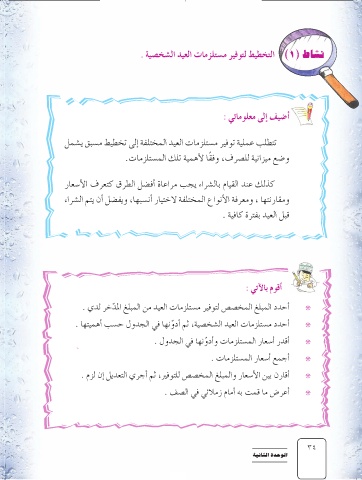 نشاط (١) التخطيط لتوفير مستلزمات العيد الشخصية .
أضيف إلى معلوماتي :
تتطلب عملية توفير مستلزمات العيد المختلفة إلى تخطيط مسبق يشمل
وضع ميزانية للصرف، وفقًا لأهمية تلك المستلزمات.
كذلك عند القيام بالشراء يجب مراعاة أفضل الطرق كتعرف الأسعار
ومقارنتها ، ومعرفة الأنواع المختلفة لاختيار أنسبها، ويفضل أن يتم الشراء
قبل العيد بفترة كافية .
أقوم بالآتي :
* أحدد المبلغ المخصص لتوفير مستلزمات العيد من المبلغ المدّخر لدي .
* أحدد مستلزمات العيد الشخصية، ثم أدوّنها في الجدول حسب أهميتها .
* أقدر أسعار المستلزمات وأدوّنها في الجدول .
* أجمع أسعار المستلزمات .
* أقارن بين الأسعار والمبلغ المخصص للتوفير، ثم أجري التعديل إن لزم .
* أعرض ما قمت به أمام زملائي في الصف .
٣٤
الوحدة الثانية